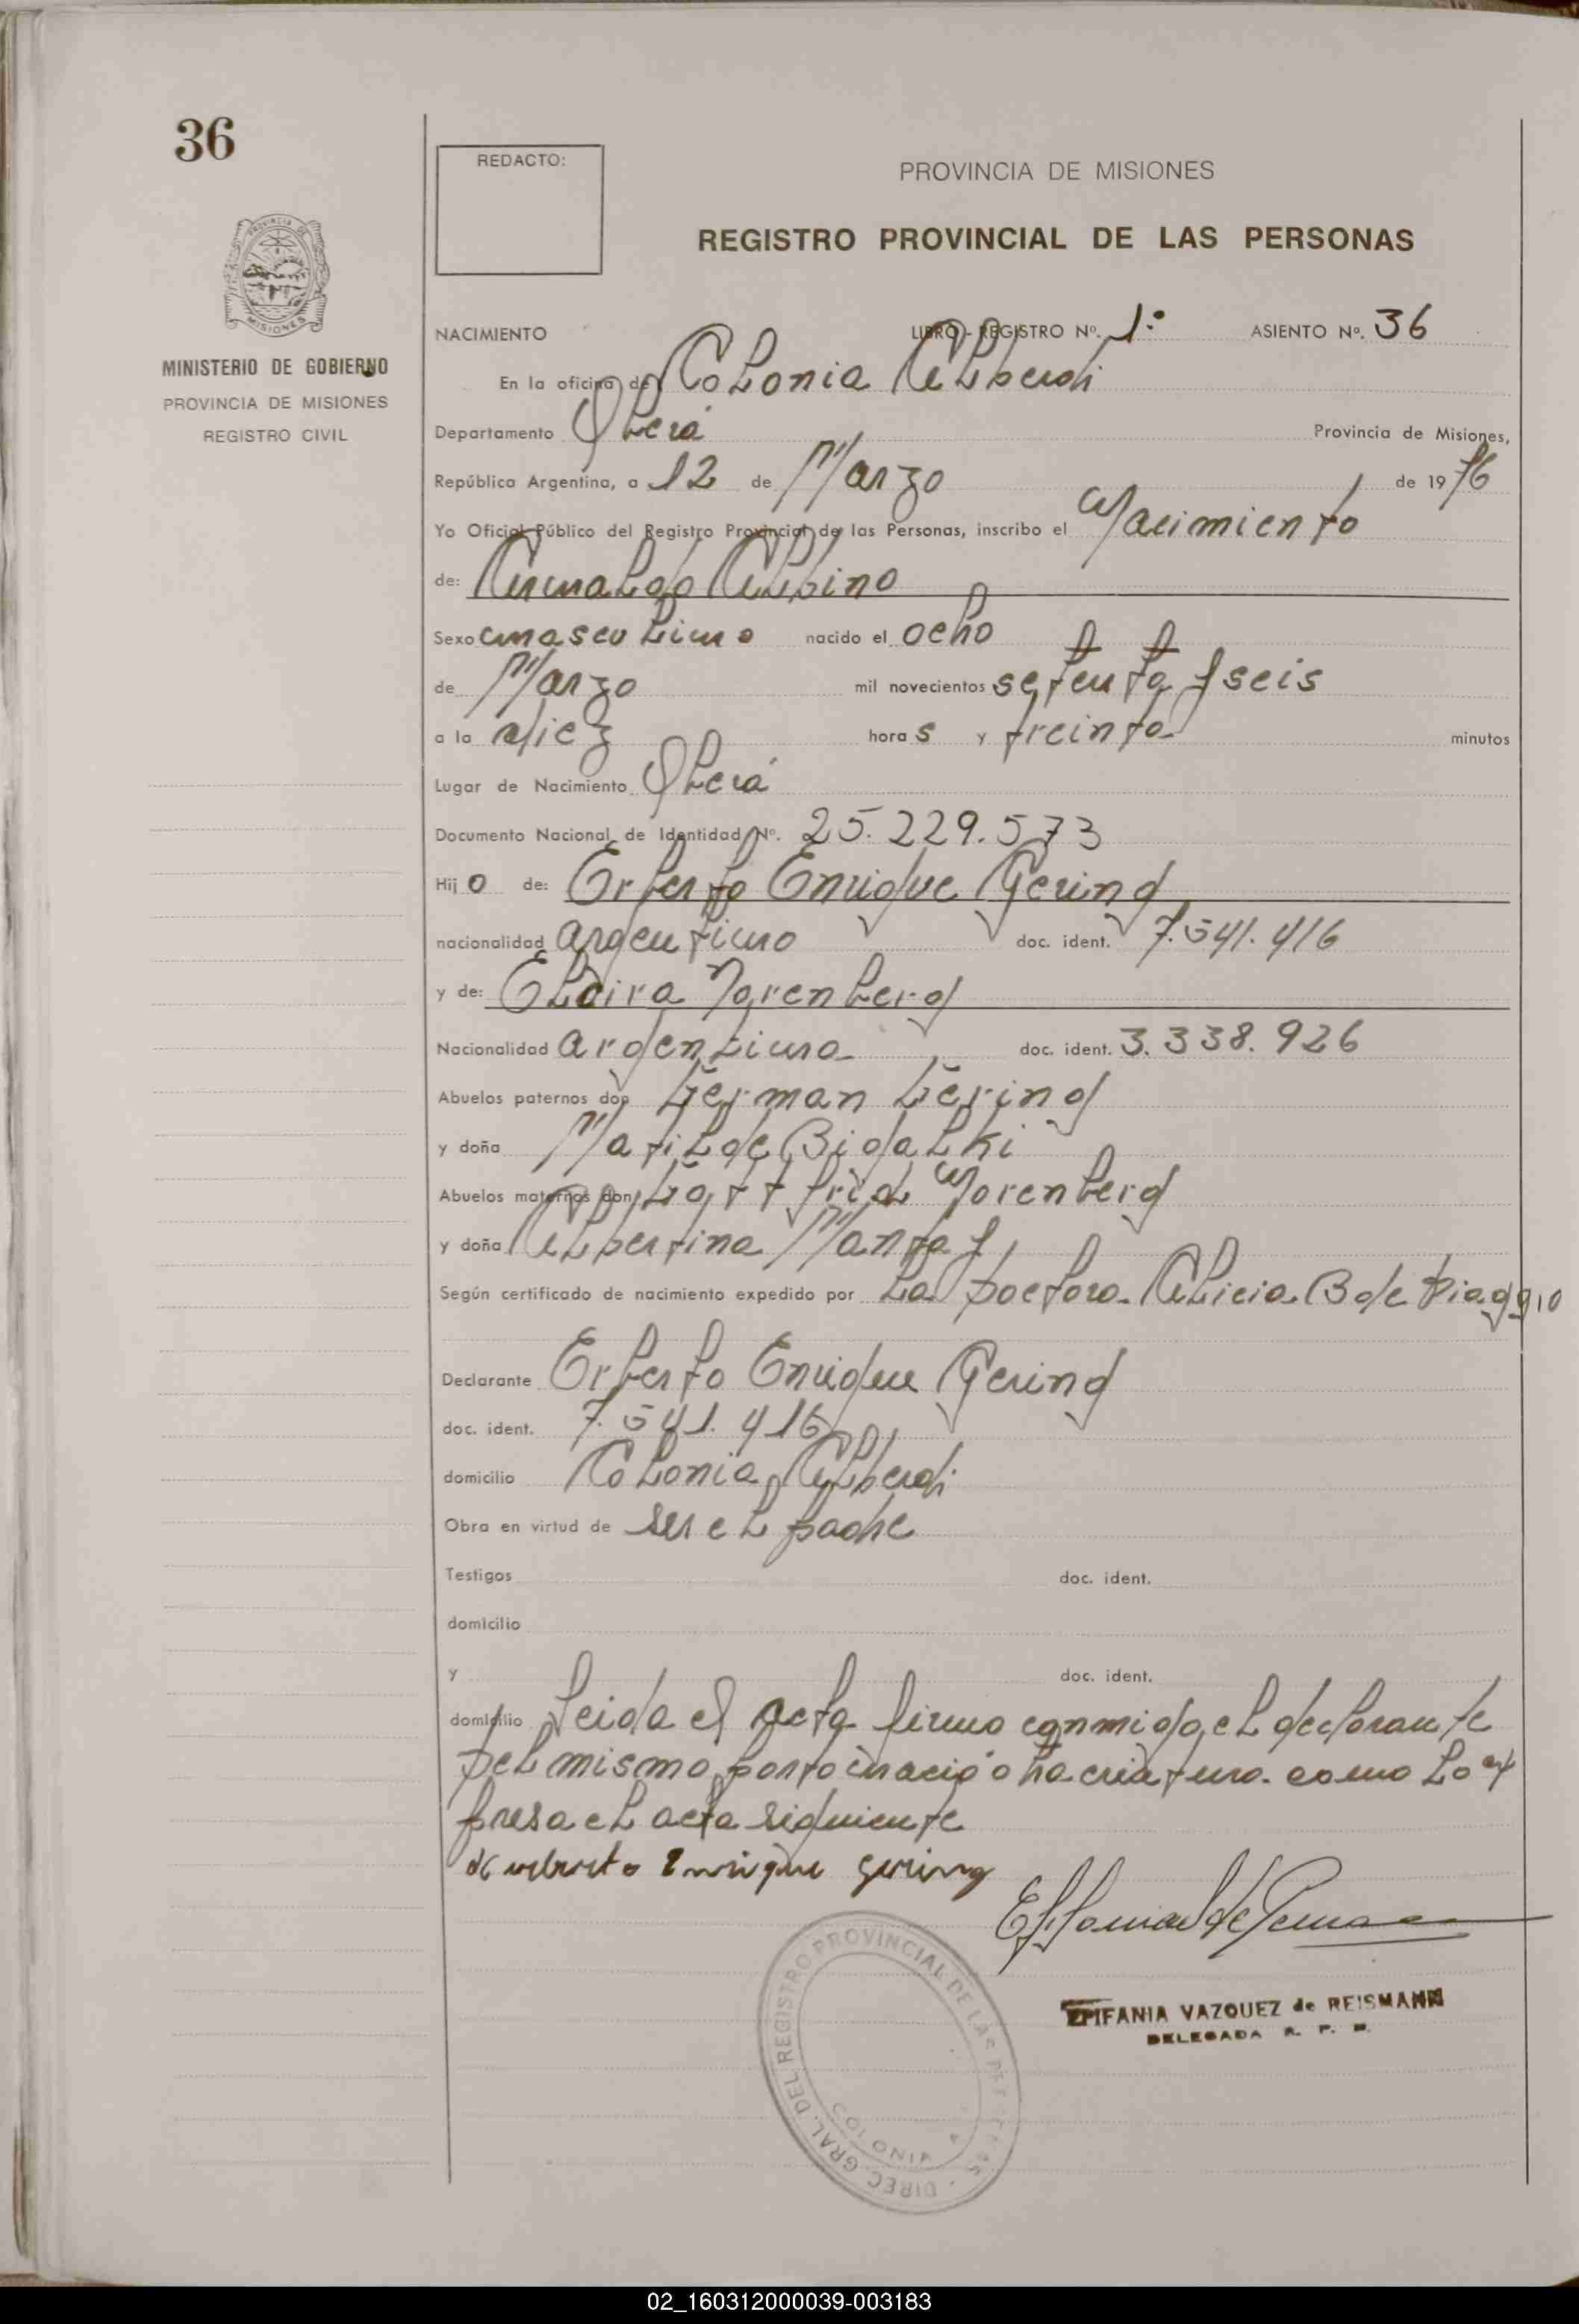 36
REDACTO:
PROVINCIA DE MISIONES
REGISTRO PROVINCIAL DE LAS PERSONAS
MISIONES
MINISTERIO DE GOBIERNO
PROVINCIA DE MISIONES
REGISTRO CIVIL
NACIMIENTO LIBRO - REGISTRO Nº. 1º ASIENTO Nº. 36
En la oficina de Colonia Alberdi
Departamento Oberá Provincia de Misiones,
República Argentina, a 12 de Marzo de 1976
Yo Oficial Público del Registro Provincial de las Personas, inscribo el Nacimiento
de: Arnaldo Albino
Sexo masculino nacido el ocho
de Marzo mil novecientos setenta y seis
a la diez horas y treinta minutos
Lugar de Nacimiento Oberá
Documento Nacional de Identidad Nº. 25.229.573
Hijo de: Erberto Enrique Gering
nacionalidad argentino doc. ident. 7.541.416
y de: Eldira Norenberg
Nacionalidad argentina doc. ident. 3.338.926
Abuelos paternos don German Gering
y doña Matilde Bigalki
Abuelos maternos don Gottfrid Norenberg
y doña Albertina Mantay
Según certificado de nacimiento expedido por La Doctora Alicia B de Biaggio
Declarante Erberto Enrique Gering
doc. ident. 7.541.416
domicilio Colonia Alberdi
Obra en virtud de ser el padre
Testigos doc. ident.
domicilio
y doc. ident.
domicilio leida el acta firmo conmigo el declarante
del mismo la criatura como lo ex
presa el acta siguiente
Enrique Gering
EPIFANIA VAZQUEZ de REISMANN
DELEGADA R. P.
DIREC. GRAL. DEL REGISTRO PROVINCIAL DE LAS
02_160312000039-003183